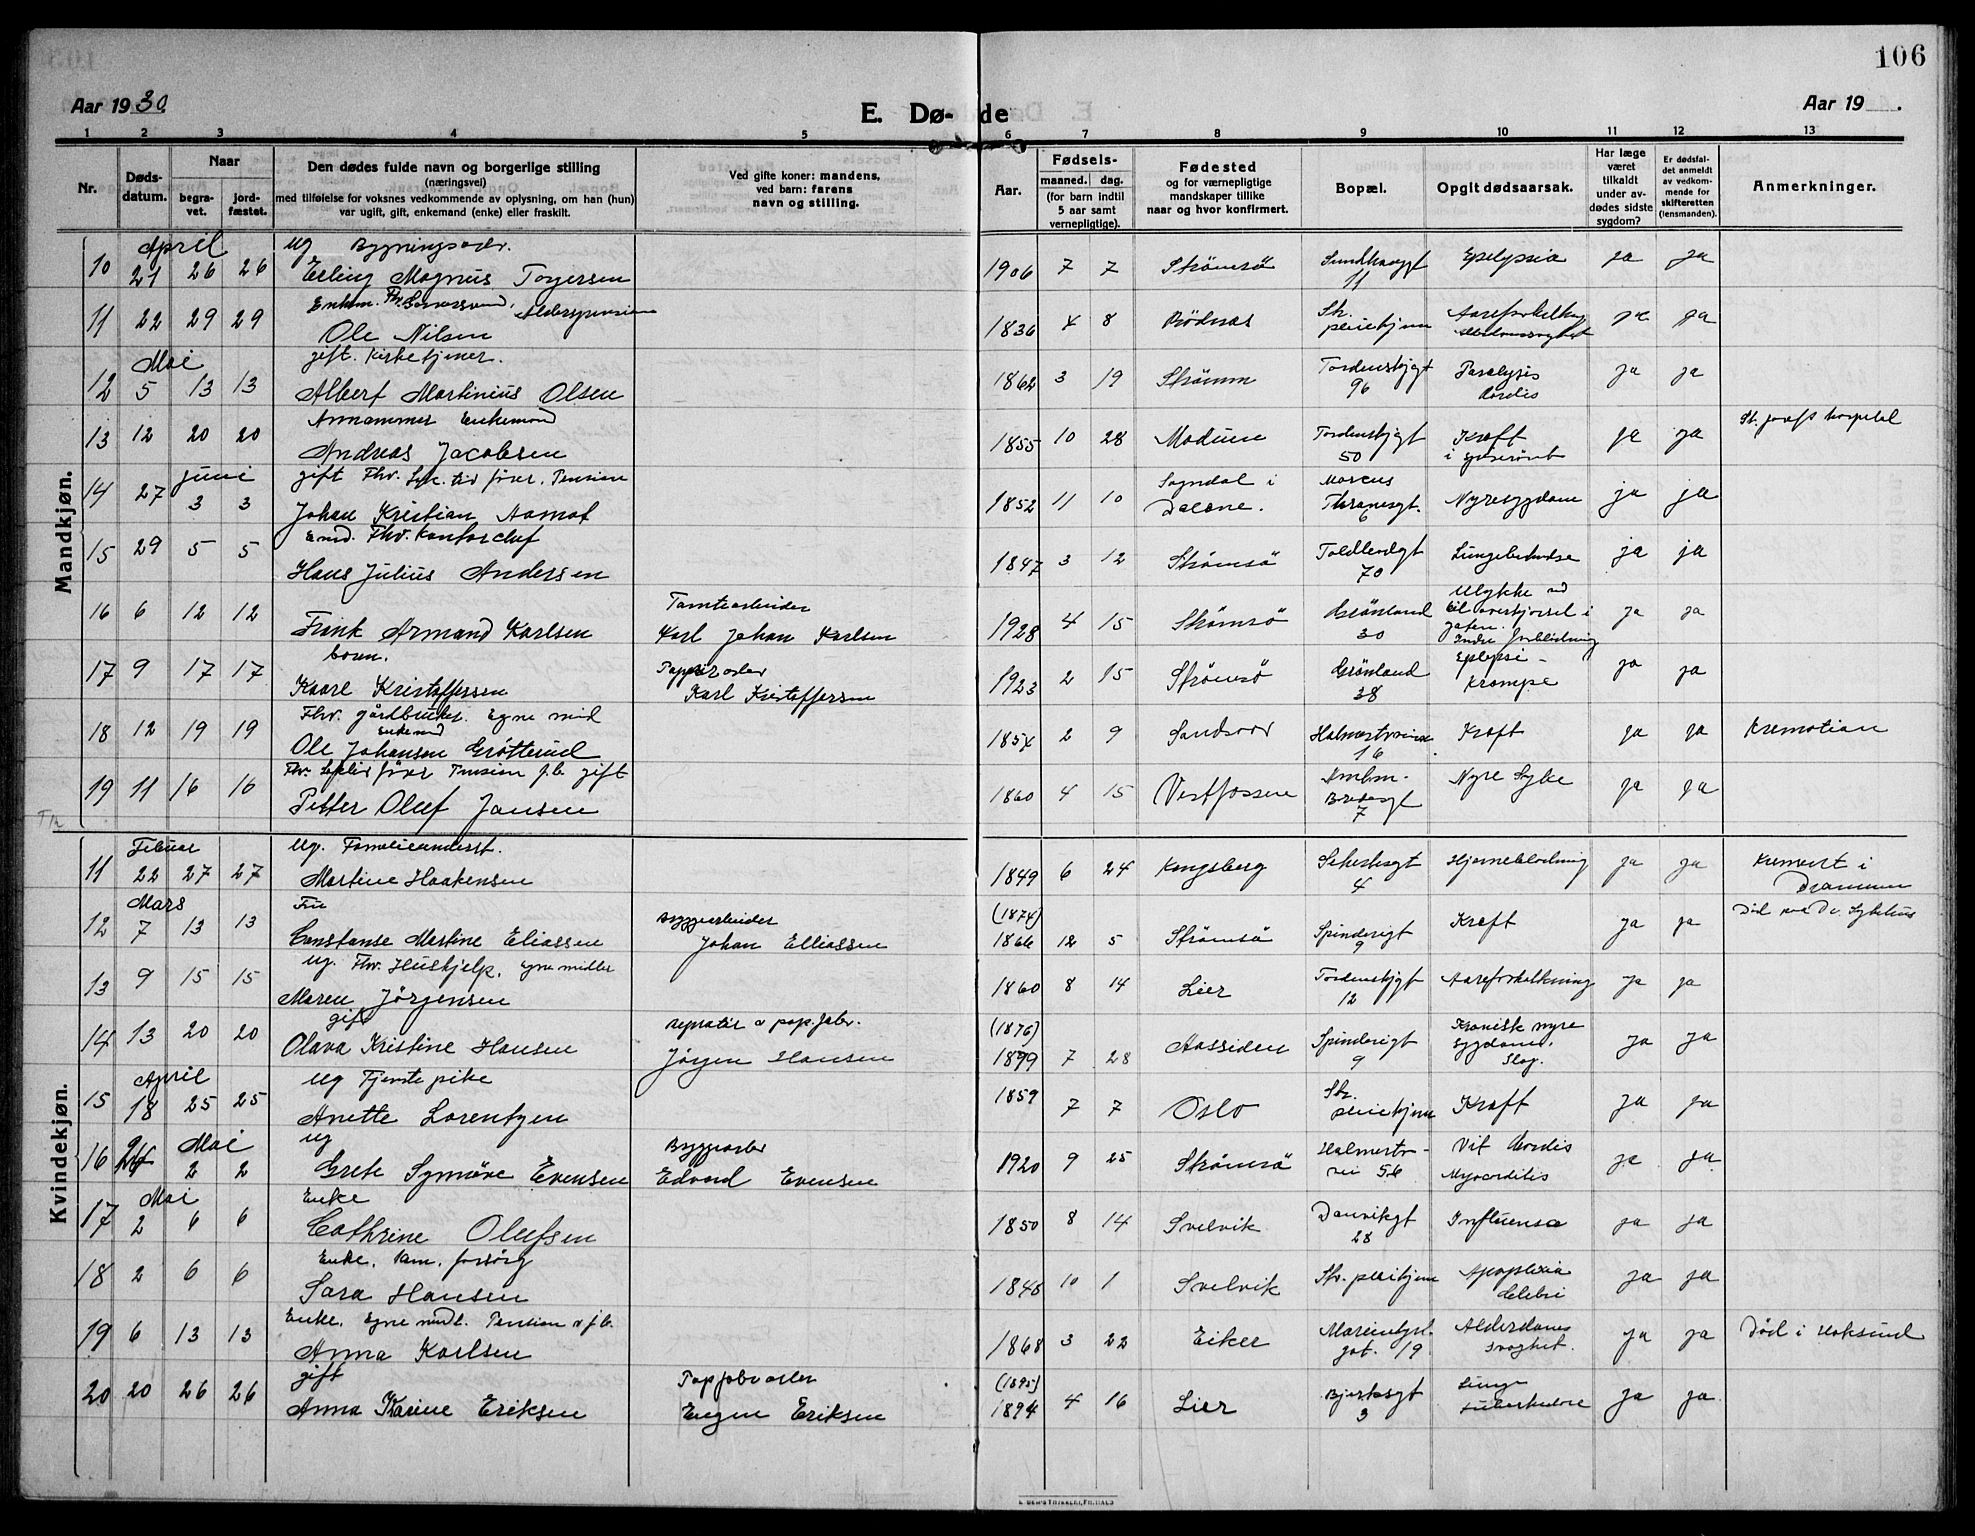 106
Aar 1930.
E. Dø-de
Aar 19 .
1 2 3 4 5 6 7 8 9 10 11 12 13
Nr.
Døds-
datum.
Naar
begra-
vet.
jord-
fæstet.
Den dødes fulde navn og borgerlige stilling
(næringsvei)
med tilføielse for voksnes vedkommende av oplysning, om han (hun)
var ugift, gift, enkemand (enke) eller fraskilt.
Ved gifte koner: mandens,
ved barn: farens
navn og stilling.
Aar.
Fødsels-
maaned. dag.
(for barn indtil
5 aar samt
vernepligtige).
Fødested
og for værnepligtige
mandskaper tillike
naar og hvor konfirmert.
Bopæl.
Opgit dødsaarsak.
Har læge
været
tilkaldt
under av-
dødes sidste
sygdom?
Er dødsfal-
det anmeldt
av vedkom-
mende for
skifteretten
(lensmanden).
Anmerkninger.
Mandkjøn.
April ug
10 21 26 26 Erling Magnus Torgersen 1906 7 7 Strømsö 11 Epelypsia ja ja
Alderspension
11 22 29 29 Ole Nilsen 1836 4 8 St. pleiehjem ja ja
Mai gift. Kirketjener.
12 5 13 13 Albert Martinius Olsen 1862 3 19 Strömm Tordenskjgt 96 Paralysis Cordis ja ja
Enkemand
13 12 20 20 Andreas Jacobsen 1855 10 28 Modum Tordenskjgt 50 Kræft i ja ja St. josefs hospital
Juni gift Fhv. Pension
14 27 3 3 Johan Kristian Aamot 1852 11 10 Sogndal i Dalene. Marcus Thranesgt. 6 Nyresygdom ja ja
Fhv. Kontorchef
15 29 5 5 Hans Julius Andersen 1847 3 12 Strømsö Toldbodgt 70 ja ja
Tomtearbeider
16 6 12 12 Frank Armand Karlsen Karl Johan Karlsen 1928 4 15 Strömsö Grönland 30 Ulykke ved bil overkjørsel i gaten. Indre forblödning ja ja
17 9 17 17 Kaare Kristoffersen Karl Kristoffersen 1923 2 15 Strömsö Grönland 38 Eplepsi - Krampe ja ja
Fhv. gårdbruker. Egne mid
enkemd
18 12 19 19 Ole Johansen Grøtterud 1854 2 9 16 Kræft ja ja Kremation
Pension f.b. gift
19 11 16 16 Petter Oluf Jansen 1860 4 15 Vestfossen 7 Nyre Syke ja ja
Kvindekjøn.
Februar ug.
11 22 27 27 Martine Haakensen 1849 6 24 Kongsberg 4 Hjerneblödning ja ja Kremert i Drammen
Mars Fru
Byggearbeider
12 7 13 13 Constanse Martine Eliassen Johan Elliassen (1874) 1866 12 5 Strömsö Spinderigt 9 Kræft ja ja Död paa Dr. Sykehus
ug. Fhv. Hushjelp, egne midler
13 9 15 15 Maren Jörgensen 1860 8 14 Lier Tordenskjgt 12 Aareforkalkning ja ja
gift
14 13 20 20 Olava Kristine Hansen Jörgen Hansen (1876) 1899 7 28 Aassiden Spinderigt 9 Kronisk nyre sygdom. Slag. ja ja
April ug Tjenstepike
15 18 25 25 Anette Lorentzen 1859 7 7 Oslo St. pleiehjem Kræft ja ja
Mai ug
16 24 2 2 Grete Synnöve Evensen Edvard Evensen 1920 9 25 Strömsö vei 56 Vit Cordis Myocorditis ja ja
Mai Enke
17 2 6 6 Cathrine Olufsen 1850 8 14 Svelvik Danvikgt 28 Influensa ja ja
Enke, kom. forsörg
18 2 6 6 Sara Hansen 1848 10 1 Svelvik St. pleiehjem Apoplexia ja ja
Enke, Egne midl. Pension a f.b.
19 6 13 13 Anna Karlsen 1868 3 22 Eiker 19 Alderdoms svaghet. ja ja Död i Hoksund
gift
20 20 26 26 Anna Karine Eriksen Eugen Eriksen (1895) 1894 4 16 Lier 3 Lunge tuberkulose ja ja